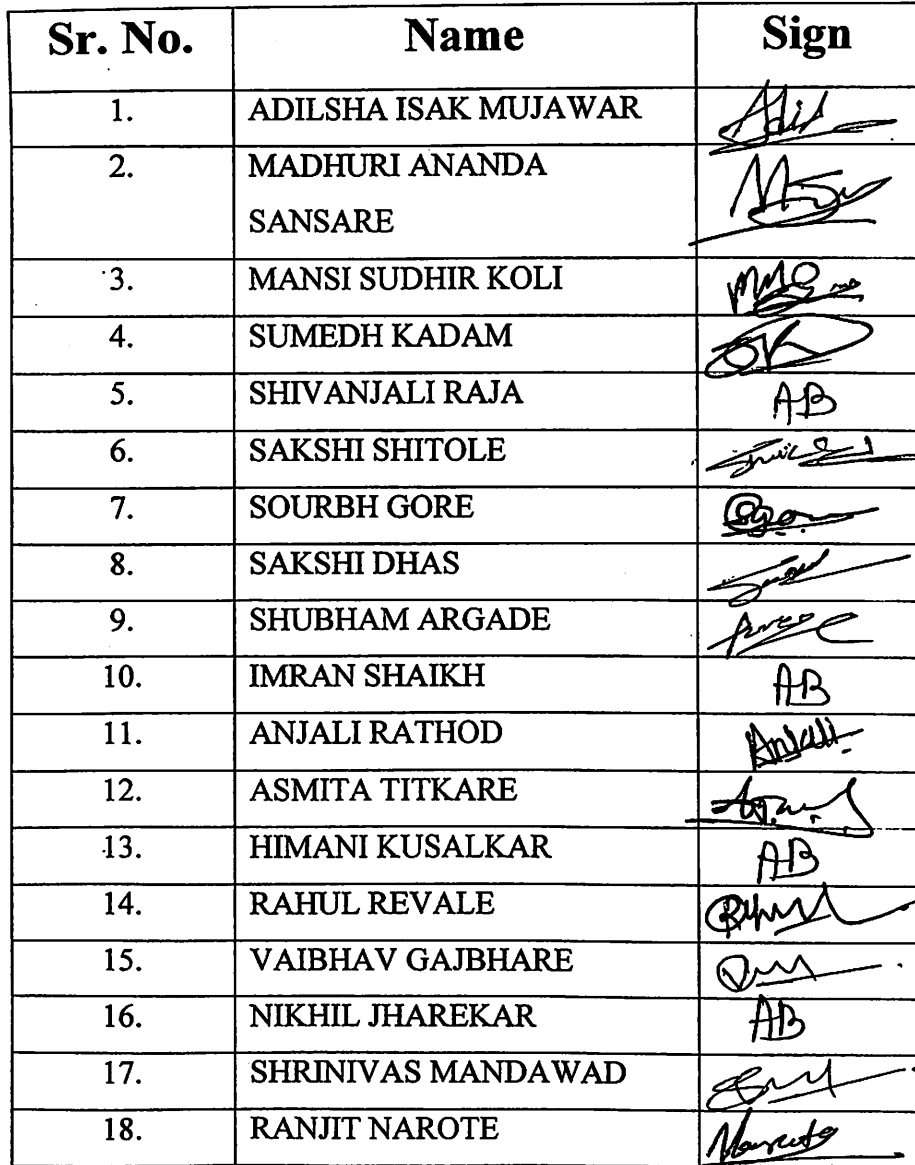 Sr. No. Name Sign
1. ADILSHA ISAK MUJAWAR Adil
2. MADHURI ANANDA
SANSARE
3. MANSI SUDHIR KOLI
4. SUMEDH KADAM SK
5. SHIVANJALI RAJA AB
6. SAKSHI SHITOLE
7. SOURBH GORE
8. SAKSHI DHAS
9. SHUBHAM ARGADE
10. IMRAN SHAIKH AB
11. ANJALI RATHOD Anjali
12. ASMITA TITKARE
13. HIMANI KUSALKAR AB
14. RAHUL REVALE
15. VAIBHAV GAJBHARE
16. NIKHIL JHAREKAR AB
17. SHRINIVAS MANDAWAD
18. RANJIT NAROTE